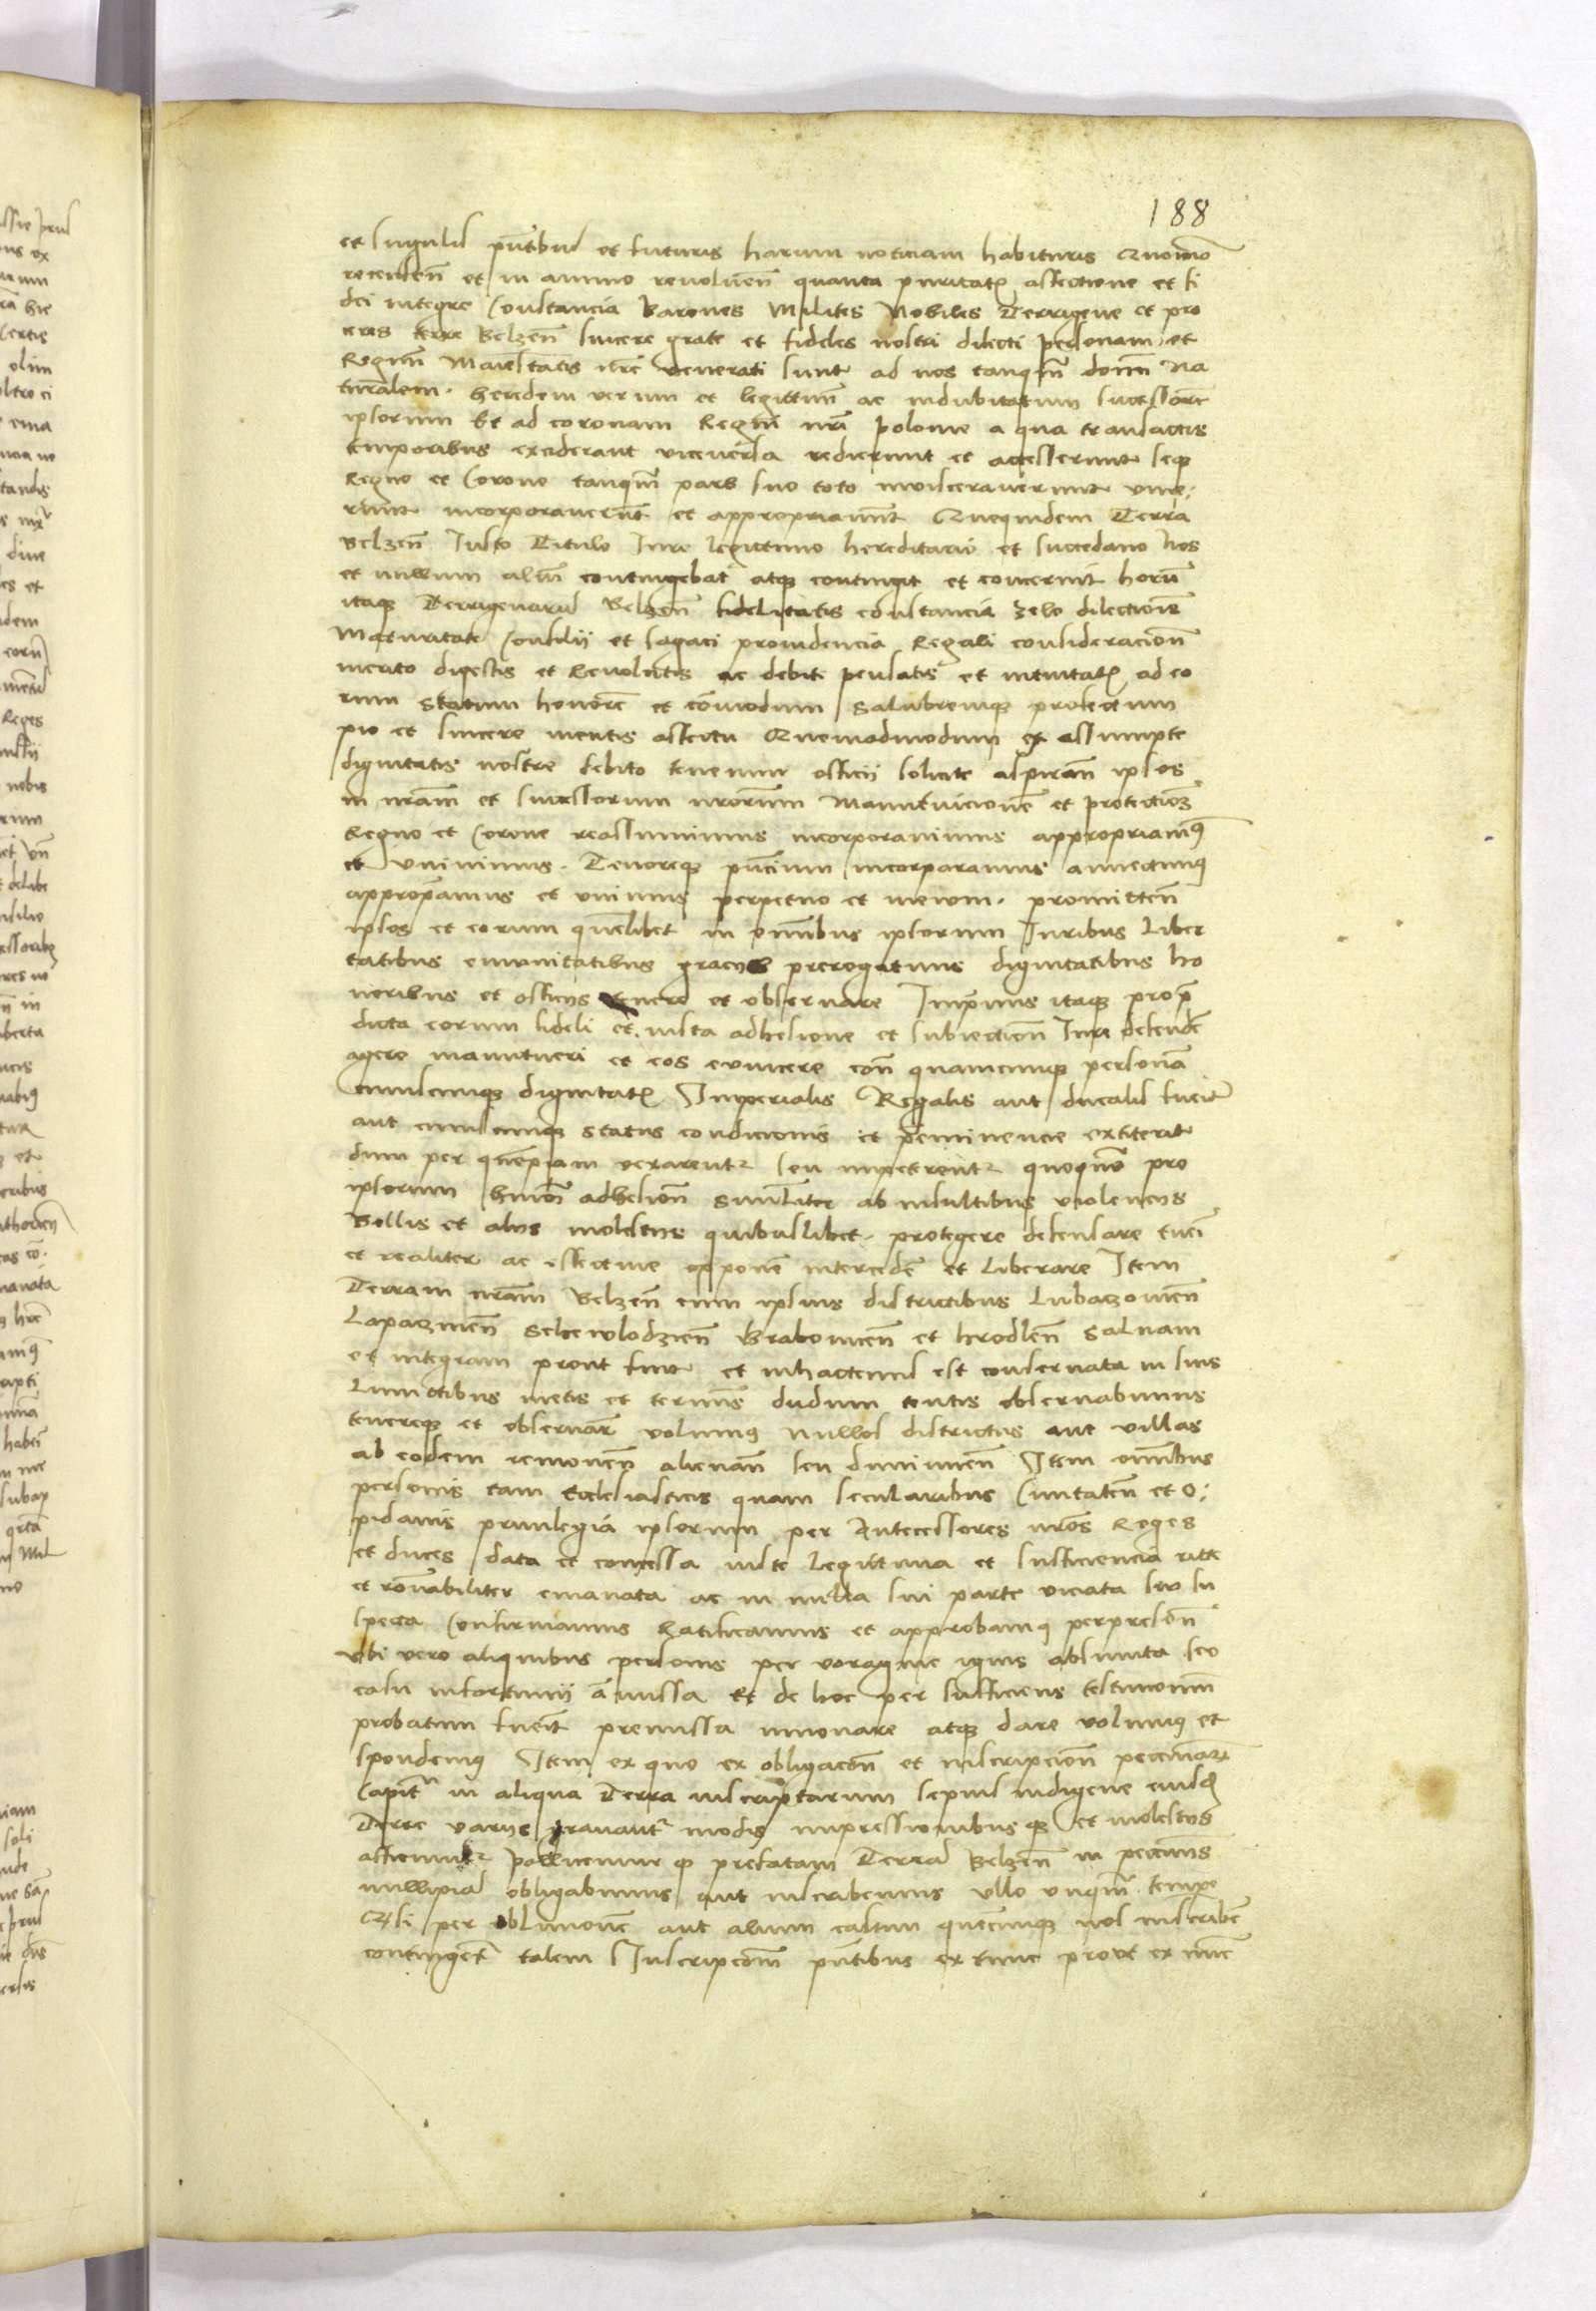 188
et singulis pntibus et futuris harum noticiam habituris Quomo
recensen et in animo revolven quanta puritatis affectione et fi
dei integre Constancia Barones Milites Nobiles Terrigene et pro
ceres terre Belzen sincere grate et fideles nostri dilecti personam et
Regiam Maiestatis nre venerati sunt ad nos tanqm domn na
turalem heredem verum et legittim ac indubitatum successore
ipsorum Et ad coronam Regni nri Polonie a qua transactis
temporibus exciderant viceversa redierunt et accesserunt seq
Regno et Corone tanqm pars suo toto invisceraverunt unie
runt incorporaverunt et appropriarunt Quequidem Terra
Belzen Iusto Titulo Iure legittimo hereditario et succedaneo Nos
et nullum alium contingebat atq contingit et concernit horum
itaq Terrigenarum Belzen fidelitatis constancia zelo dilectionis
Maturitate Consilii et sagaci providencia Regali consideracion
merito digestis et Revolutis ac debite pensatis et intuitatis ad eo
rum statum honore et comodum salubremq profectum
pio et sincere mentis affectu Quemadmodum ex assumpte
dignitatis nostre debito tenemur officii solicite aspiran ipsos
in nram et successorum nrorum Manutenicione et protectione
Regno et Corone reassumimus incorporavimus appropriamus
et univimus Tenoreq pncium incorporamus annectimus
appropamus et unimus perpetuo et in evum promitten
ipsos et eorum quelibet in omnibus ipsorum Iuribus Liber
tatibus emunitatibus graciis prerogativis dignitatibus ho
noribus et officiis tenere et observare Inprimis itaq prop
dicta eorum fideli et iusta adhesione et subiection Iure defende
agere manutueri et eos evincere con quamcunq personam
cuiuscunq dignitatis Imperialis Regalis aut ducalis fuerit
aut cuiuscunq status condicionis et peminencie extiterit
dum per quempiam vexarentur seu impeterentur quoquo pro
ipsorum huiusmodi adhesion similiter ab insultibus violenciis
Bellis et aliis molestiis quibuslibet protegere defensare tueri
et realiter ac effective opponere intercede et Liberare Item
Terram nram Belzen cum ipsius districtibus Lubaczovien
Lopaczinen Schewlodzien Grabovicen et hrodlen Salvam
et integram prout fuit et inhactenus est conservata in suis
Limitibus metis et terminis dudum tentis observabimus
tenereq et observare volumus nullos districtus aut villas
ab eodem removen alienan seu diminuen Item omnibus
personis tam Ecclesiasticis quam secularibus Civitaten et o
pidanis privilegia ipsorum per Antecessores nros Reges
et duces data et concessa iuste Legittima et sufficiencia ritte
et ronabiliter emanata ac in nulla sui parte viciata seu su
specta Confirmamus Ratificamus et approbamus perpresen
Ubi vero aliquibus personis per voragine ignis absumta seu
casu infortunii amissa Et de hoc per sufficiens testimonium
probatum fuerit premissa innovare atq dare volumus et
spondemus Item ex quo ex obligacion et inscripcion pecuniar
Capit in aliqua Terra inscriptarum sepius indigene eiusd
Terre variis gravant modis impressionibus q et molestiis
afficiuntur Pollicemur q prefatam Terram Belzen in pecuniis
nullipiam obligabimus aut inscribemus ullo unqm tempore
Et si per oblivione aut alium casum quemcunq nos inscribere
contingeret talem Inscripcom pntibus ex tunc prout ex nunc